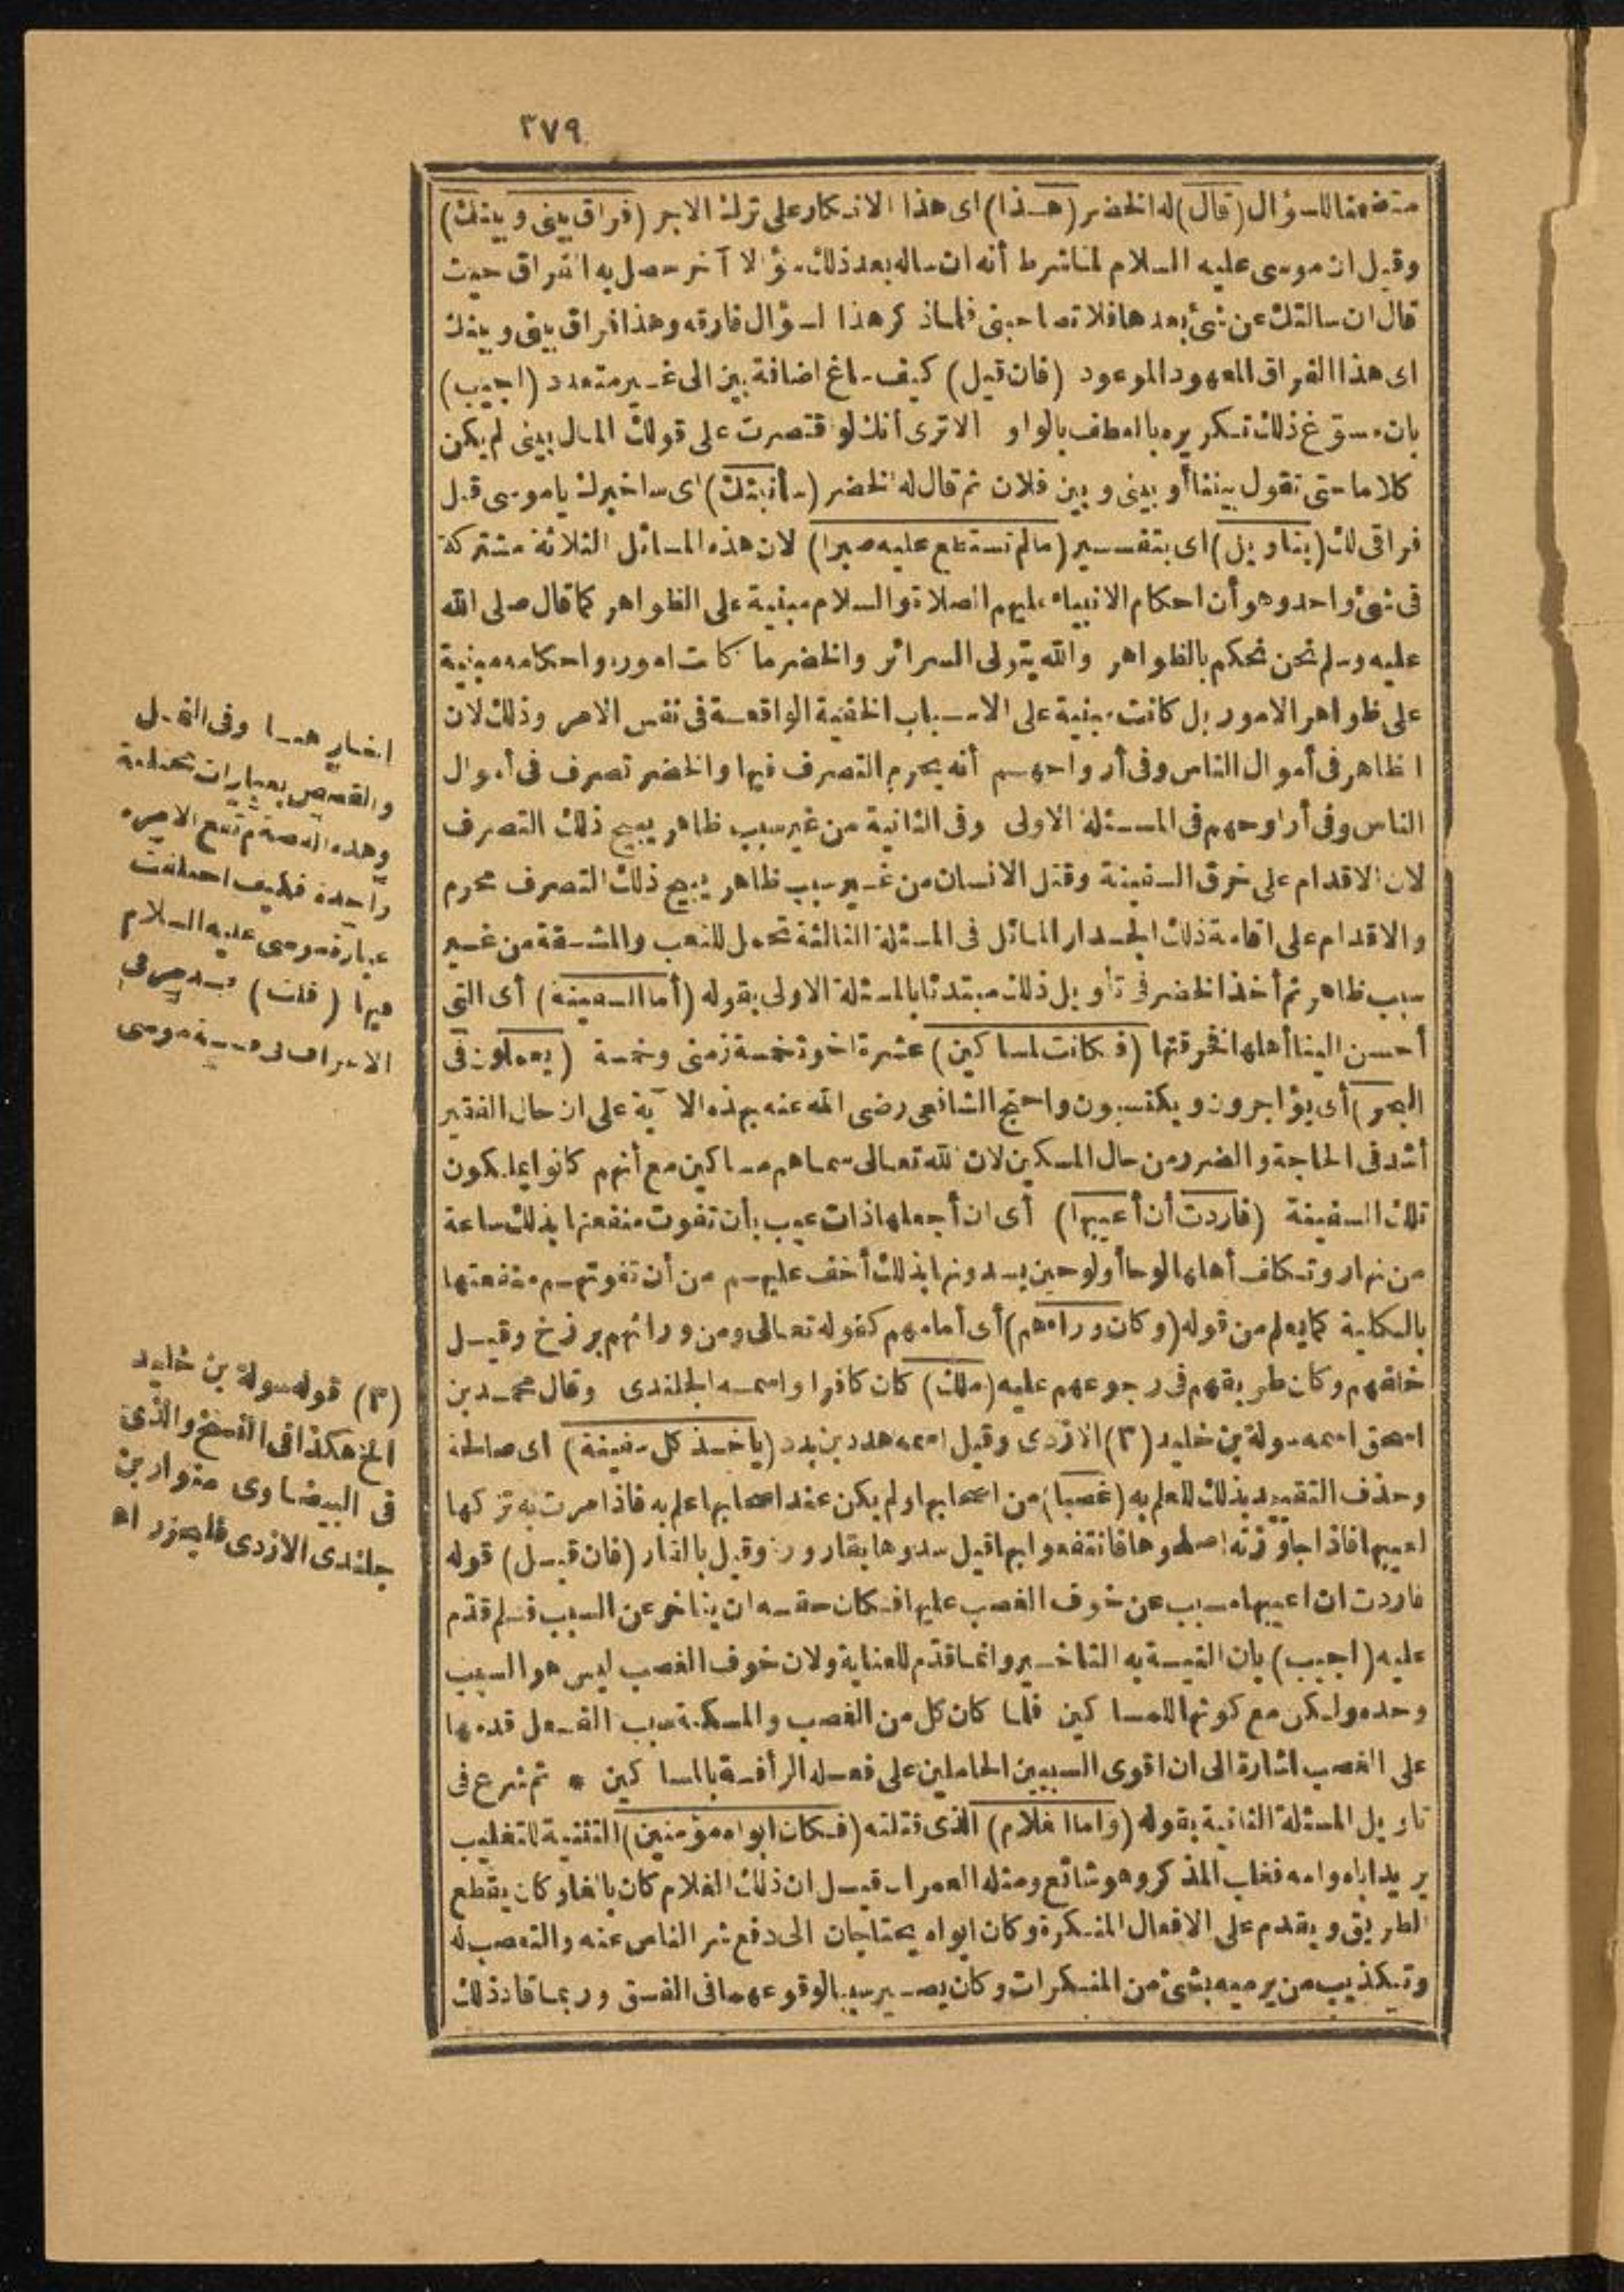 ٣٧٩
متضمنا للسؤال (قال) له الخضر (هذا) اى هذا الانكار على ترك الاجر (فراق بينى وبينك)
وقيل ان موسى عليه السلام لما شرط أنه ان ساله بعد ذلك سؤالا آخر حصل به الفراق حيث
قال ان سالتك عن شئ بعدها فلا تصاحبنى فلما ذكر هذا السؤال فارقه وهذا فراق بينى وبينك
اى هذا الفراق المعهود الموعود (فان قيل) كيف ساغ اضافة بين الى غير متعدد (اجيب)
بان مسوّغ ذلك تكريره بالعطف بالواو الا ترى أنك لو اقتصرت على قولك المال بينى لم يكن
كلاما حتى تقول بيننا أو بينى وبين فلان ثم قال له الخضر (سأنبئك) اى ساخبرك يا موسى قبل
فراقى لك (بتاويل) اى بتفسير (مالم تستطع عليه صبرا) لان هذه المسائل الثلاثة مشتركة
فى شئ واحد وهو أن احكام الانبياء عليهم الصلاة والسلام مبنية على الظواهر كما قال صلى الله
عليه وسلم نحن نحكم بالظواهر والله يتولى السرائر والخضر ما كانت اموره واحكامه مبنية
على ظواهر الامور بل كانت مبنية على الاسباب الخفية الواقعة فى نفس الامر وذلك لان
الظاهر فى أموال الناس وفى أرواحهم أنه يحرم التصرف فيها والخضر تصرف فى أموال
الناس وفى أرواحهم فى المسئلة الاولى وفى الثانية من غير سبب ظاهر يبيح ذلك التصرف
لان الاقدام على خرق السفينة وقتل الانسان من غير سبب ظاهر يبيح ذلك التصرف محرم
والاقدام على اقامة ذلك الجدار المائل فى المسئلة الثالثة تحمل للتعب والمشقة من غير
سبب ظاهر ثم أخذ الخضر فى تأويل ذلك مبتدئا بالمسئلة الاولى بقوله (أما السفينة) أى التى
أحسن الينا أهلها فخرقتها (فكانت لمساكين) عشرة اخوة خمسة زمنى وخمسة (يعملون فى
البحر) أى يؤاجرون ويكتسبون واحتج الشافعى رضى الله عنه بهذه الآية على ان حال الفقير
أشد فى الحاجة والضرر من حال المسكين لان الله تعالى سماهم مساكين مع أنهم كانوا يملكون
تلك السفينة (فاردت أن أعيبها) أى ان أجعلها ذات عيب بأن تفوت منفعتها بذلك ساعة
من نهار وتكلف أهلها لوحا أو لوحين يسدونها بذلك أخف عليهم من أن تفوتهم منفعتها
بالكلية كما يعلم من قوله (وكان وراءهم) أى أمامهم كقوله تعالى ومن ورائهم برزخ وقيل
خلفهم وكان طريقهم فى رجوعهم عليه (ملك) كان كافرا واسمه الجلندى وقال محمد بن
اسحق اسمه سولة بن خليد (٣) الازدى وقيل اسمه هدد بن بدد (ياخذ كل سفينة) اى صالحة
وحذف التقييد بذلك للعلم به (غصبا) من اصحابها ولم يكن عند اصحابها علم به فاذا مرت به تركها
لعيبها فاذا جاوزته اصلحوها فانتفعوا بها قيل سدوها بقارورة وقيل بالقار (فان قيل) قوله
فاردت ان اعيبها مسبب عن خوف الغصب عليها فكان حقه ان يتاخر عن السبب فلم قدّم
عليه (اجيب) بان النية به التاخير وانما قدّم للعناية ولان خوف الغصب ليس هو السبب
وحده ولكن مع كونها للمساكين فلما كان كل من الغصب والمسكنة سبب الفعل قدمها
على الغصب اشارة الى ان اقوى السببين الحاملين على فعله الرأفة بالمساكين * ثم شرع فى
تاويل المسئلة الثانية بقوله (واما الغلام) الذى قتلته (فكان ابواه مؤمنين) التثنية للتغليب
يريد اباه وامه فغلب المذكر وهو شائع ومثله العمران قيل ان ذلك الغلام كان بالغا وكان يقطع
الطريق ويقدم على الافعال المنكرة وكان ابواه يحتاجان الى دفع شر الناس عنه والتعصب له
وتكذيب من يرميه بشئ من المنكرات وكان يصير سببا لوقوعهما فى الفسق وربما قاد ذلك
اخبار هنا وفى النمل
والقصص بعبارات مختلفة
وهذه القصة لم تقع الا مرة
واحدة فكيف اختلفت
عبارة موسى عليه السلام
فيها (قلت)
(٣) قوله سولة بن خليد
الخ هكذا فى النسخ والذى
فى البيضاوى منوار بن
جلندى الازدى فليحرر اه